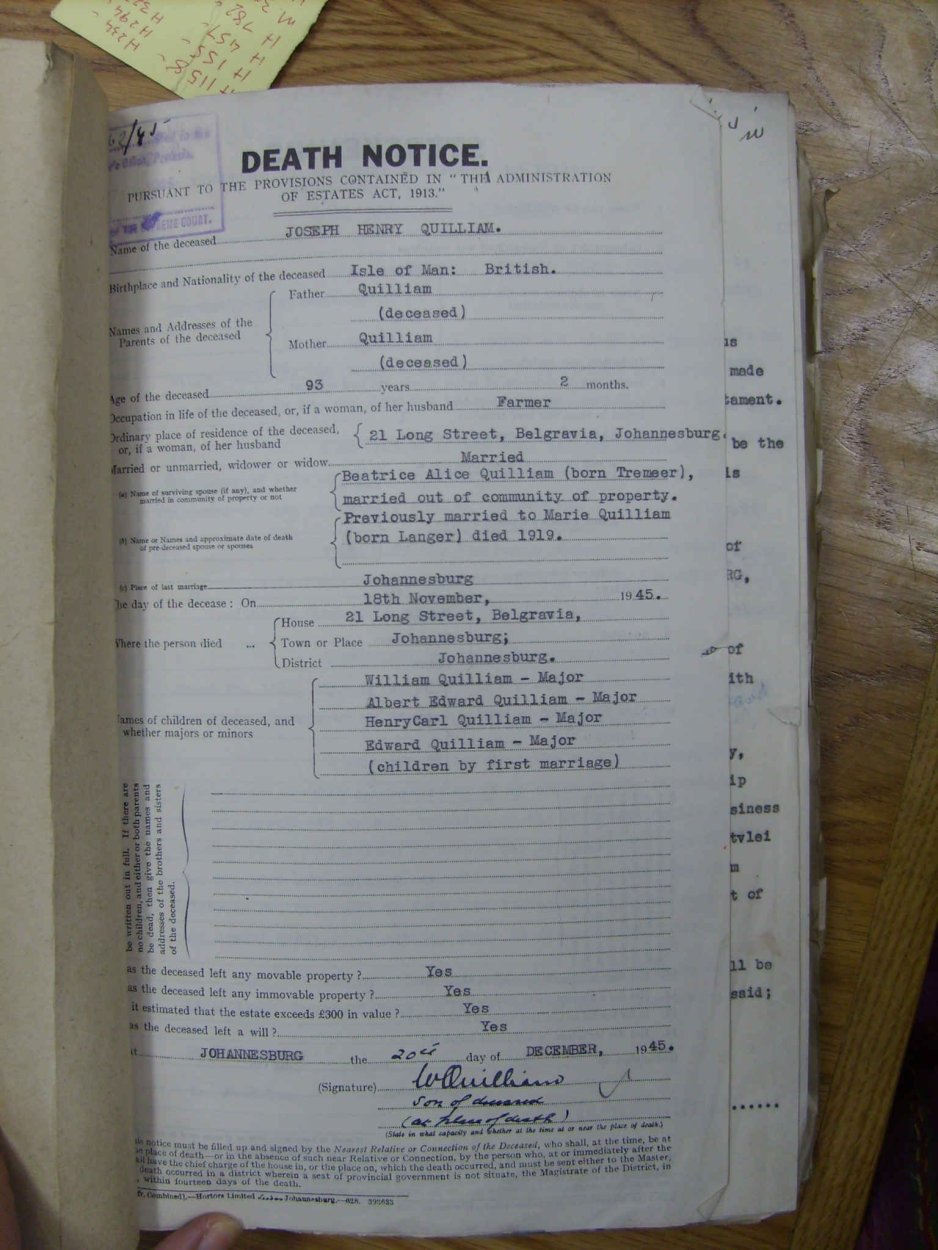 M
H 782
H 457
H 155
H 1158
H294
H234
62/45
DEATH NOTICE.
PURSUANT TO THE PROVISIONS CONTAINED IN "THE ADMINISTRATION
OF ESTATES ACT, 1913."
SUPREME COURT.
Name of the deceased JOSEPH HENRY QUILLIAM.
Birthplace and Nationality of the deceased Isle of Man: British.
Names and Addresses of the Parents of the deceased
Father Quilliam
(deceased)
Mother Quilliam
(deceased)
Age of the deceased 93 years 2 months.
Occupation in life of the deceased, or, if a woman, of her husband Farmer
Ordinary place of residence of the deceased, or, if a woman, of her husband 21 Long Street, Belgravia, Johannesburg.
Married or unmarried, widower or widow Married
(a) Name of surviving spouse (if any), and whether married in community of property or not
Beatrice Alice Quilliam (born Tremeer),
married out of community of property.
(b) Name or Names and approximate date of death of pre-deceased spouse or spouses
Previously married to Marie Quilliam
(born Langer) died 1919.
(c) Place of last marriage Johannesburg
The day of the decease: On 18th November, 1945.
Where the person died ...
House 21 Long Street, Belgravia,
Town or Place Johannesburg;
District Johannesburg.
Names of children of deceased, and whether majors or minors
William Quilliam - Major
Albert Edward Quilliam - Major
HenryCarl Quilliam - Major
Edward Quilliam - Major
(children by first marriage)
be written out in full. If there are
no children, and either or both parents
be dead, then give the names and
addresses of the brothers and sisters
of the deceased.
as the deceased left any movable property? Yes
as the deceased left any immovable property? Yes
it estimated that the estate exceeds £300 in value? Yes
as the deceased left a will? Yes
at JOHANNESBURG the 20th day of DECEMBER, 1945.
(Signature) WQuilliam
Son of deceased
(at place of death)
(State in what capacity and whether at the time at or near the place of death.)
notice must be filled up and signed by the Nearest Relative or Connection of the Deceased, who shall, at the time, be at
place of death—or in the absence of such near Relative or Connection, by the person who, at or immediately after the
have the chief charge of the house in, or the place on, which the death occurred, and must be sent either to the Master,
death occurred in a district wherein a seat of provincial government is not situate, the Magistrate of the District, in
within fourteen days of the death.
Combined).—Hortors Limited Johannesburg.—628. 393633
is
made
tament.
be the
is
of
RG,
of
ith
y,
ip
siness
tvlei
m
t of
ll be
said;
......